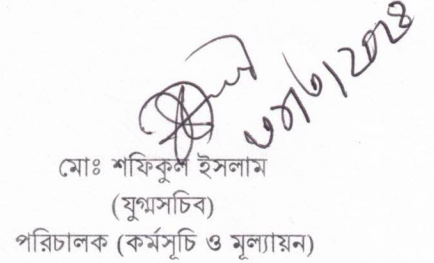 মোঃ শফিকুল ইসলাম
(যুগ্মসচিব)
পরিচালক (কর্মসূচি ও মূল্যায়ন)